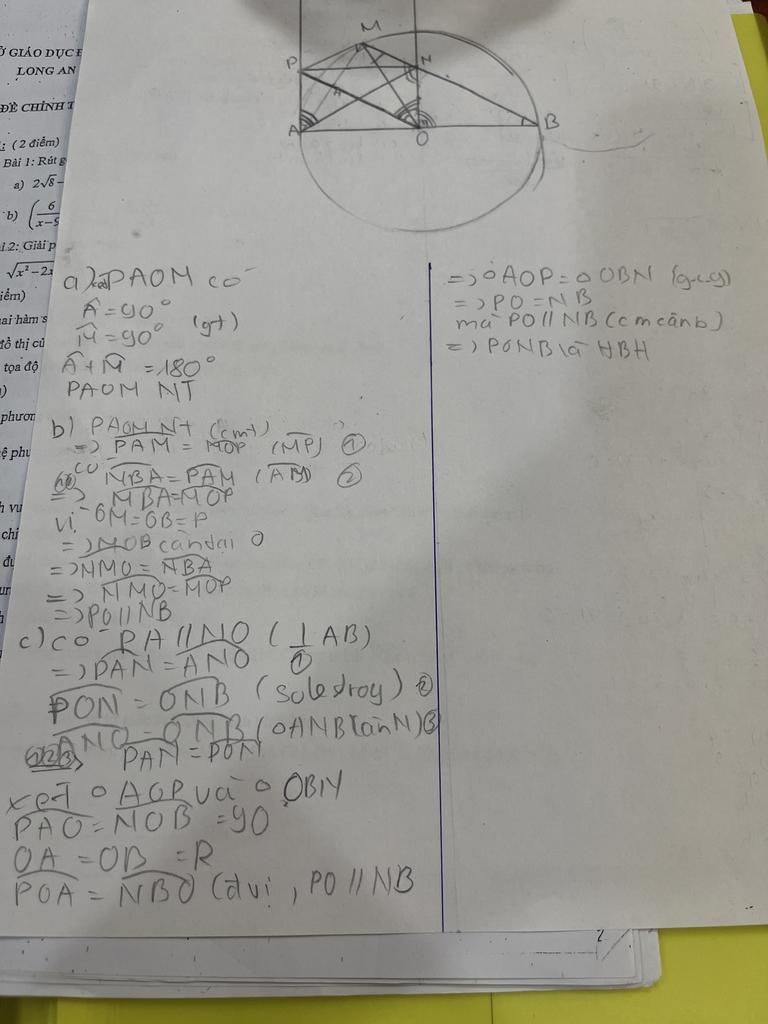 Ở GIÁO DỤC Đ
LONG AN
ĐỀ CHÍNH T
: ( 2 điểm)
Bài 1: Rút g
a) 2√8 -
b) (6/x-5
i 2: Giải p
√x² - 2x
iểm)
hai hàm s
đồ thị củ
tọa độ
phươn
hệ phu
h vu
chi
M
P
N
A
O
B
a) PAOM có
Â = 90°
M̂ = 90° (gt)
Â + M̂ = 180°
PAOM NT
b) PAOM NT (cmt)
=> PAM = MOP (MP) ①
có NBA = PAM (AB) ②
=> MBA = MOP
Vì OM = OB = P
=> MOB cân tại O
=> NMO = NBA
=> NMO = MOP
=> PO // NB
c) có PA // NO ( ⊥ AB)
=> PAN = ANO ①
PON = ONB (sole troy) ②
ANO = ONB (△ANB cân N) ③
①②③ PAN = PON
xét △ AOP và △ OBN
PAO = NOB = 90
OA = OB = R
POA = NBO (đ vị , PO // NB
=> △ AOP = △ OBN (g-c-g)
=> PO = NB
mà PO // NB (cm cân b)
=> PONB là HBH
2